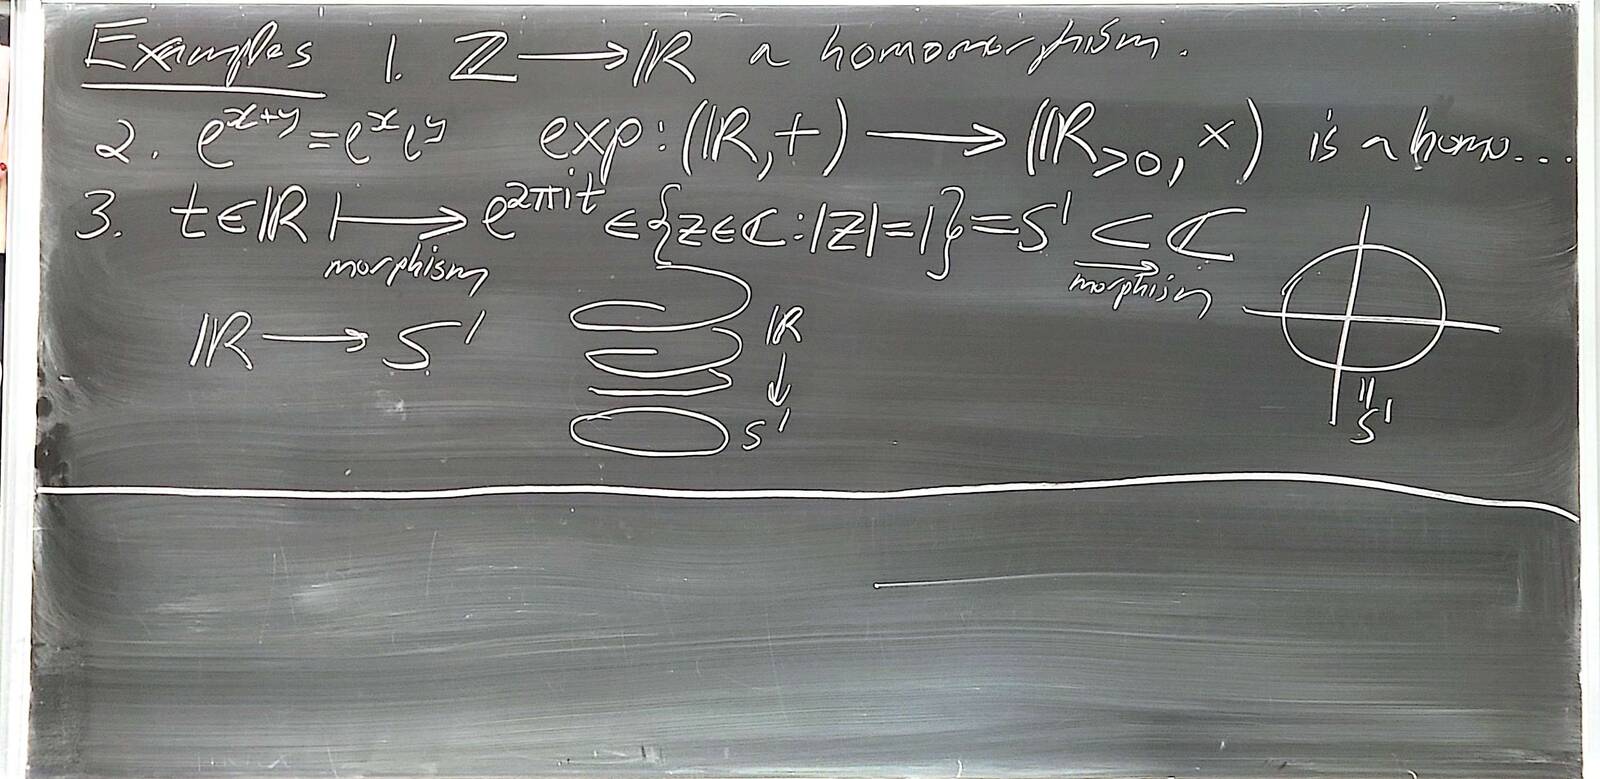 Examples 1. ℤ ⟶ ℝ a homomorphism.
2. e^{x+y} = e^x e^y exp: (ℝ, +) ⟶ (ℝ_{>0}, ×) is a homo...
3. t ∈ ℝ ⟼ e^{2πit} ∈ {z ∈ ℂ : |z| = 1} = S¹ ⊂ ℂ
morphism morphism
ℝ ⟶ S¹
ℝ
↓
S¹
||
S¹